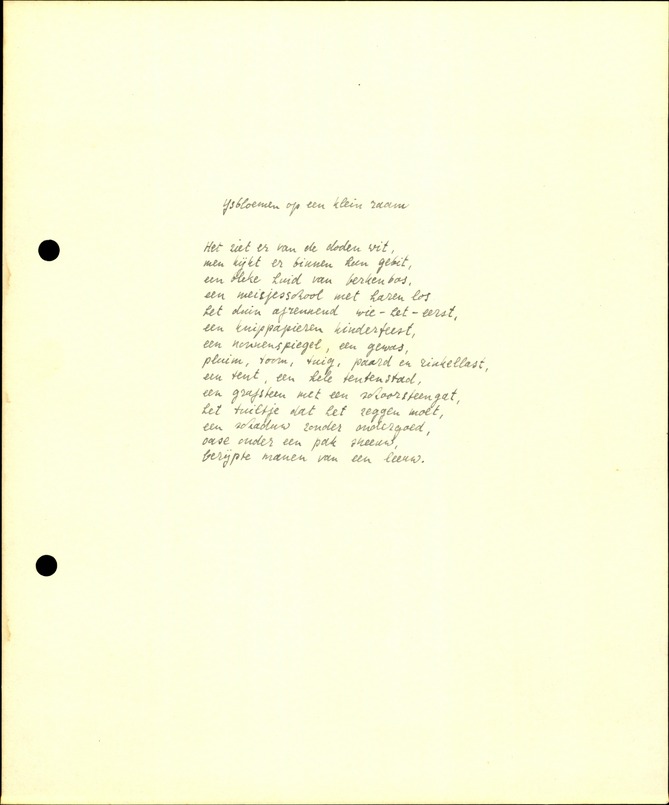 Ysbloemen op een klein raam
Het ziet er van de doden wit,
men kijkt er binnen hun gebit,
een bleke huid van berkenbos,
een meisjesschool met haren los
het duin afrennend wie-het-eerst,
een knippapieren kinderfeest,
een nonnenspiegel, een gewas,
pluim, toom, tuig, paard en rinkellast,
een tent, een hele tentenstad,
een grafsteen met een schoorsteengat,
het tuiltje dat het zeggen moet,
een schaduw zonder ondergoed,
oase onder een pak sneeuw,
berijpte manen van een leeuw.